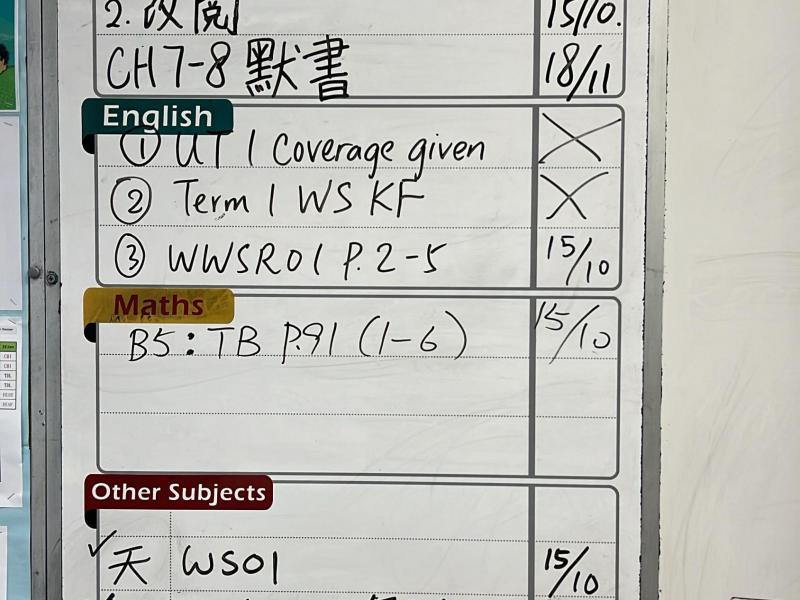 2. 改閱 15/10.
CH7-8 默書 18/11
English
① UT 1 Coverage given
② Term 1 WS KF
③ WWSR01 P.2-5 15/10
Maths 15/10
B5: TB P.91 (1-6)
Other Subjects
✓天 WS01 15/10